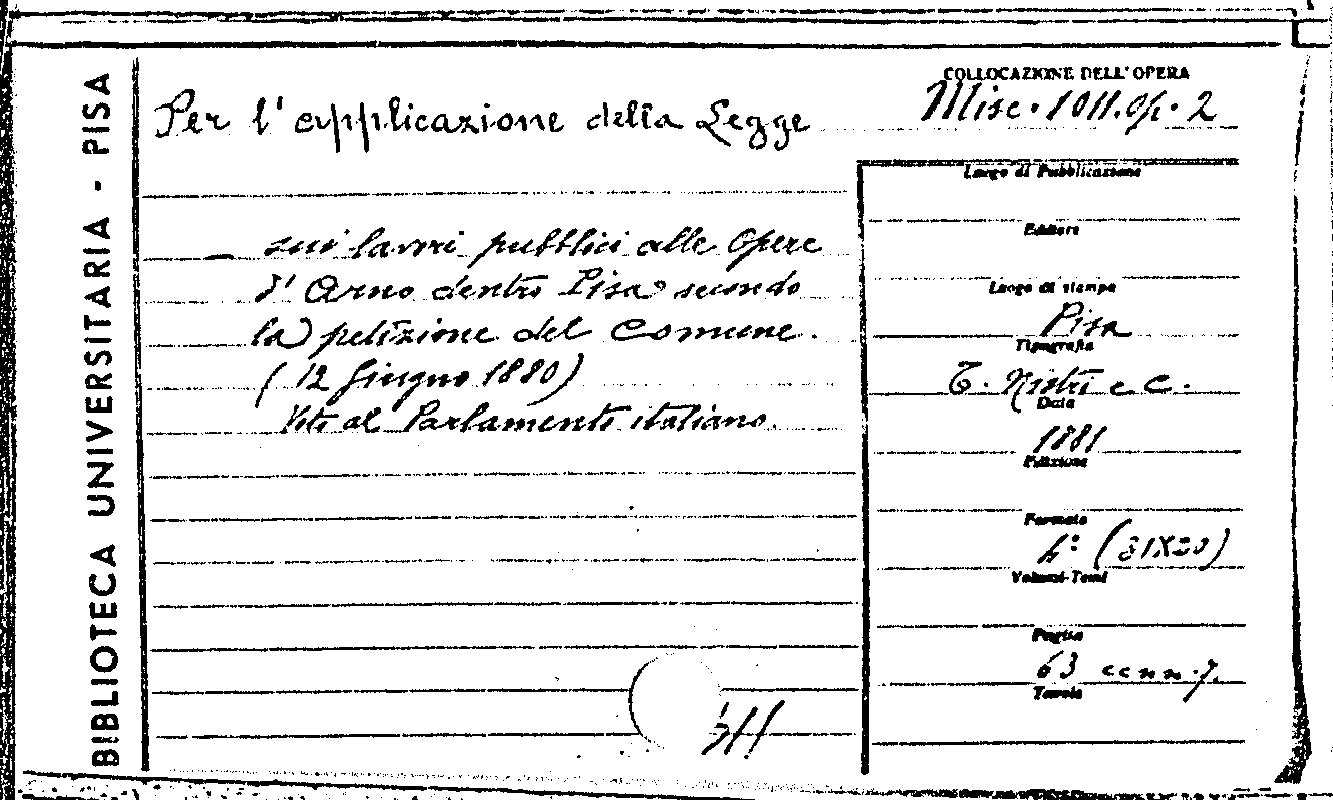 BIBLIOTECA UNIVERSITARIA - PISA
Per l'applicazione della Legge
sui lavori pubblici alle Opere
d'Arno dentro Pisa secondo
la petizione del Comune.
(12 Giugno 1880)
Voti al Parlamento italiano.
COLLOCAZIONE DELL'OPERA
Misc. 1011. Op. 2
Luogo di Pubblicazione
Editore
Luogo di stampa
Pisa
Tipografia
T. Nistri e C.
Data
1881
Edizione
Formato
4° (31X20)
Volumi-Tomi
Pagine
63
Tavole